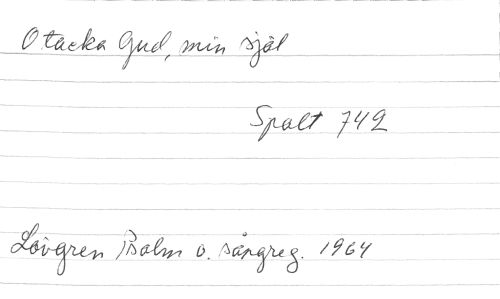 O tacka Gud, min själ
Spalt 742
Lövgren Psalm o. sångreg. 1964